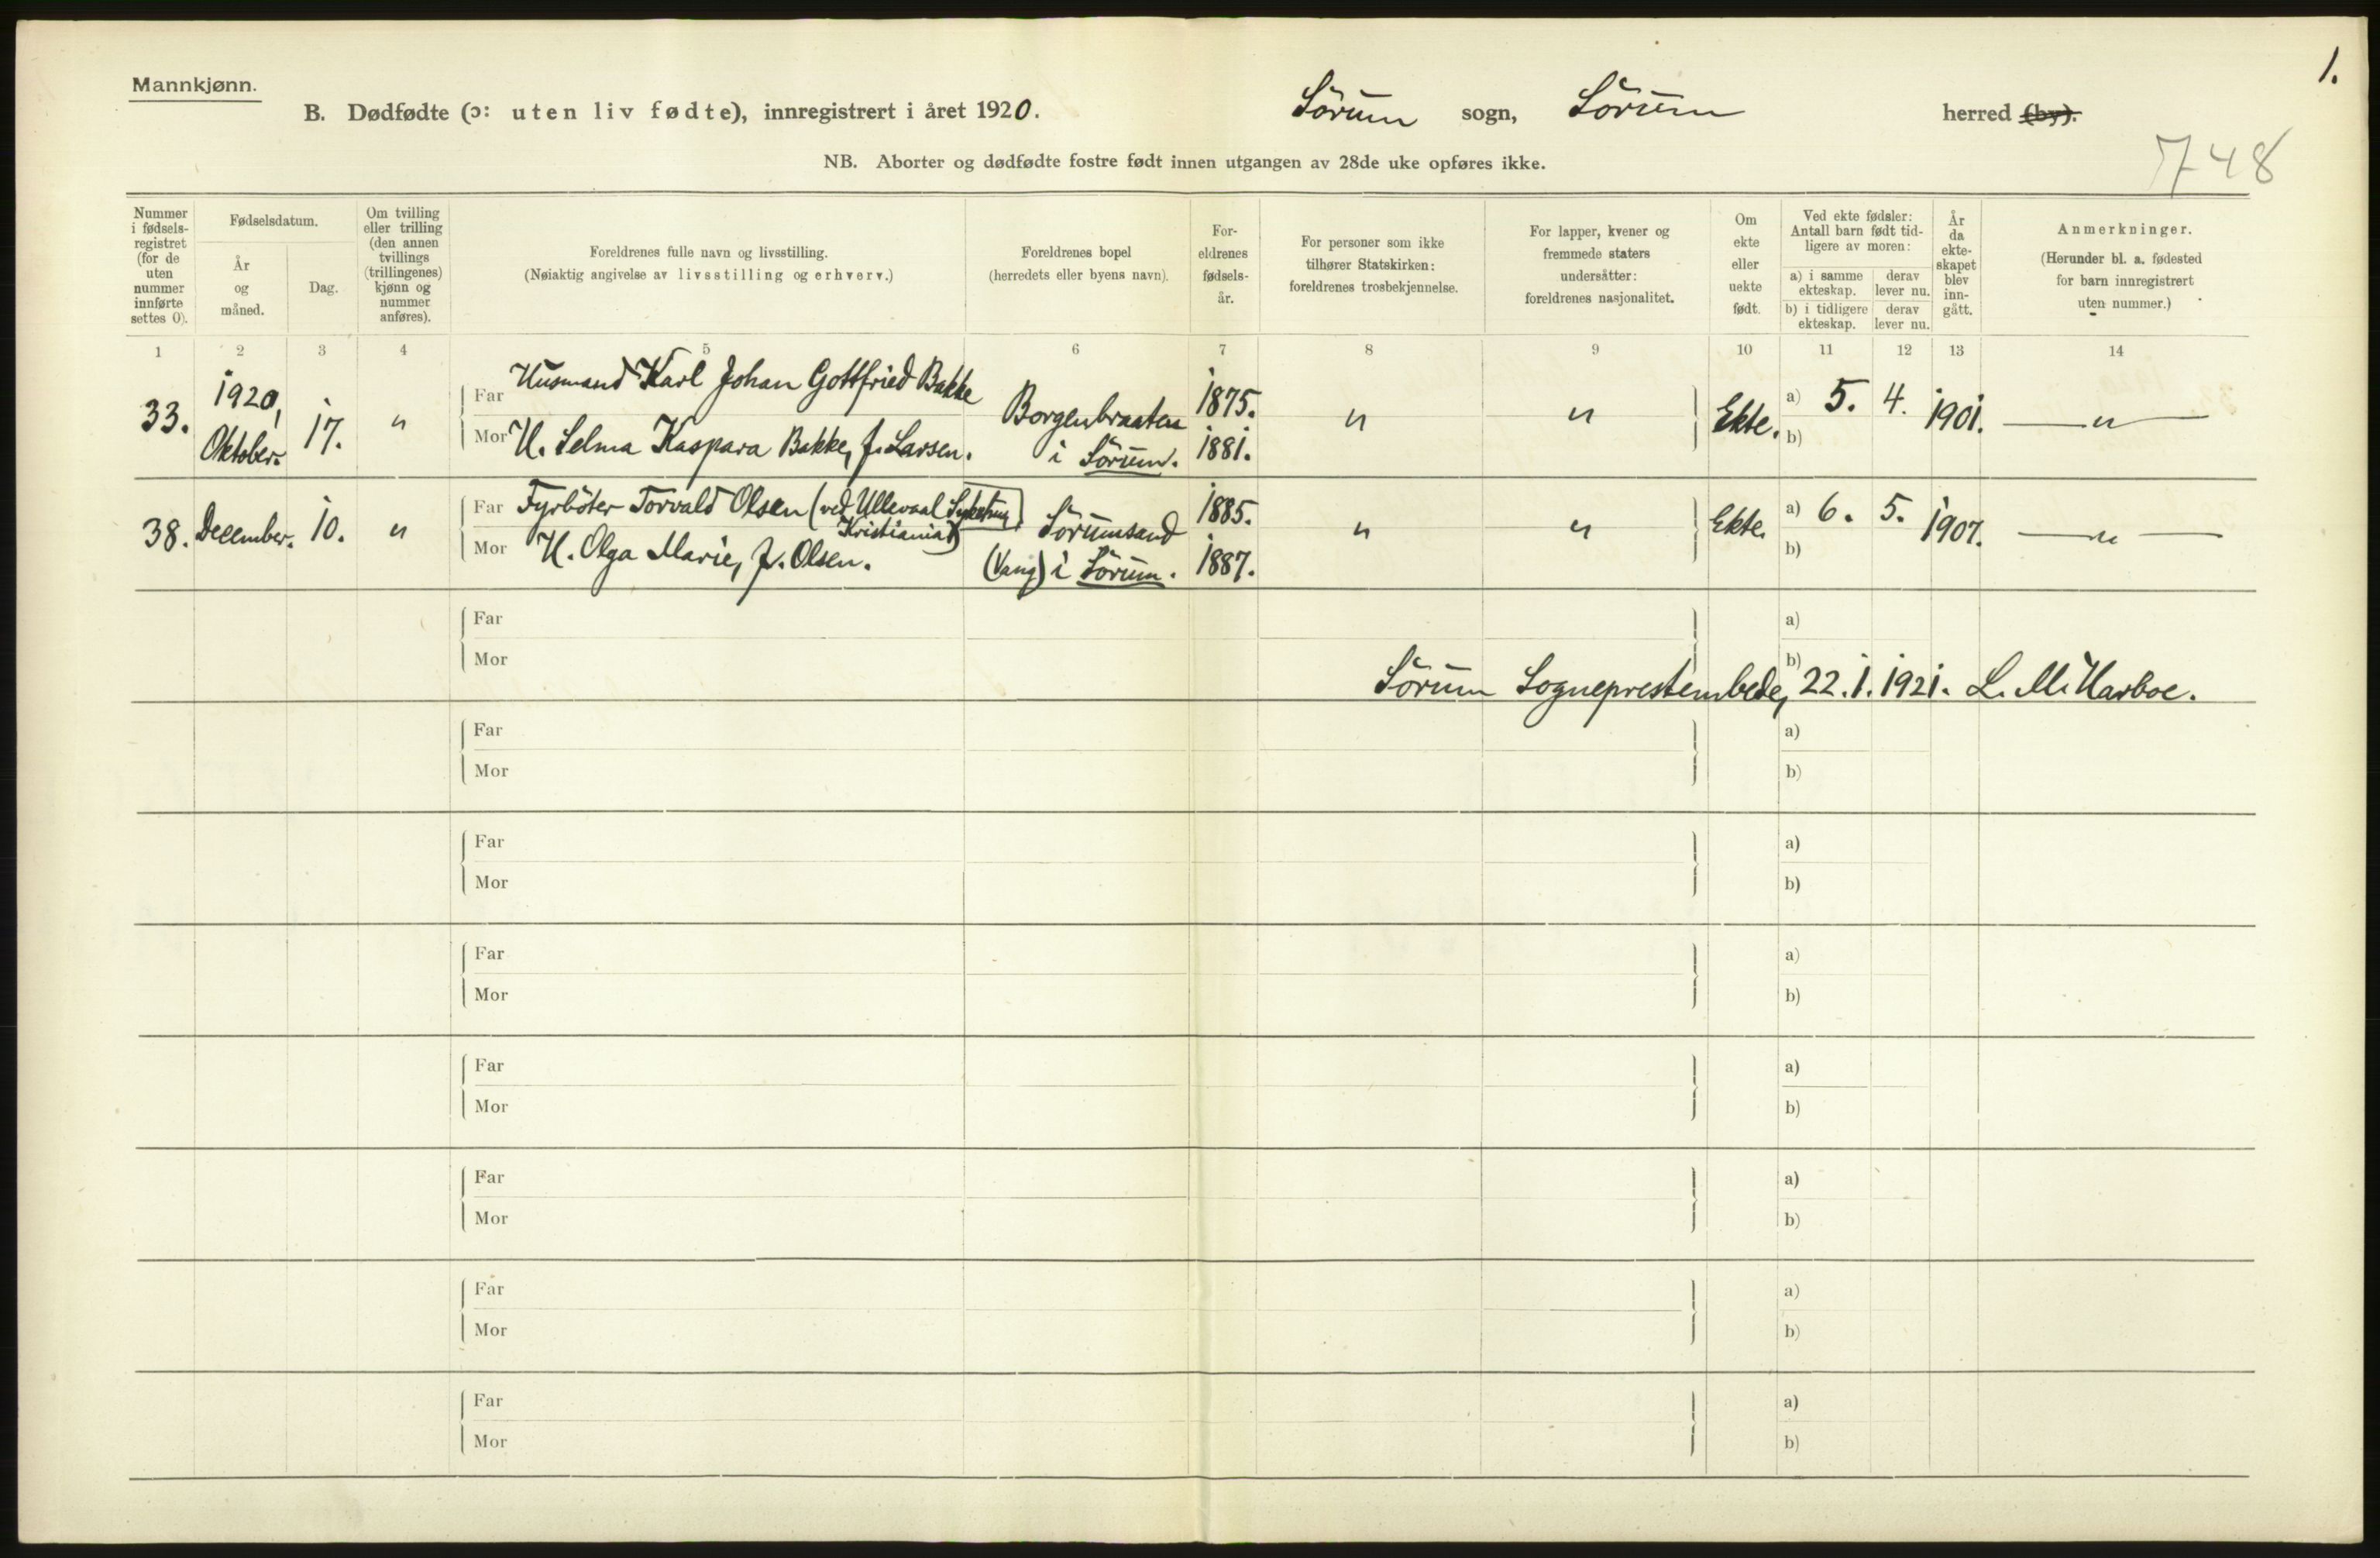 1.
Mannkjønn.
B. Dødfødte (ɔ: uten liv fødte), innregistrert i året 1920. Sörum sogn, Sörum herred (by).
748
NB. Aborter og dødfødte fostre født innen utgangen av 28de uke opføres ikke.
Nummer i fødsels- registret (for de uten nummer innførte settes 0).
Fødselsdatum.
År og måned.
Dag.
Om tvilling eller trilling (den annen tvillings (trillingenes) kjønn og nummer anføres).
Foreldrenes fulle navn og livsstilling.
(Nøiaktig angivelse av livsstilling og erhverv.)
Foreldrenes bopel
(herredets eller byens navn).
For- eldrenes fødsels- år.
For personer som ikke tilhører Statskirken: foreldrenes trosbekjennelse.
For lapper, kvener og fremmede staters undersåtter: foreldrenes nasjonalitet.
Om ekte eller uekte født.
Ved ekte fødsler: Antall barn født tid- ligere av moren:
a) i samme ekteskap.
derav lever nu.
b) i tidligere ekteskap.
derav lever nu.
År da ekte- skapet blev inn- gått.
Anmerkninger.
(Herunder bl. a. fødested for barn innregistrert uten nummer.)
1 2 3 4 5 6 7 8 9 10 11 12 13 14
33. 1920, Oktober. 17. "
Far Husmand Karl Johan Gottfried Bakke
Mor H. Selma Kaspara Bakke, f. Larsen.
Borgenbraaten i Sörum.
1875.
1881.
" " Ekte. a) 5. 4. b) 1901. — " —
38. December. 10. "
Far Fyrböter Torvald Olsen (ved Ullevaal Sykehus, Kristiania)
Mor H. Olga Marie, f. Olsen.
Sörumsand (Vang) i Sörum.
1885.
1887.
" " Ekte. a) 6. 5. b) 1907. — " —
Far a)
Mor b)
Sörum Sogneprestembede, 22.1.1921. L. M. Harboe.
Far a)
Mor b)
Far a)
Mor b)
Far a)
Mor b)
Far a)
Mor b)
Far a)
Mor b)
Far a)
Mor b)
Far a)
Mor b)